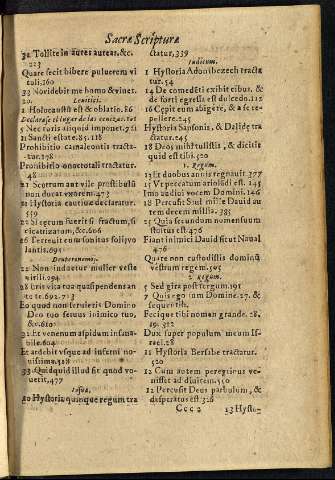 Sacræ Scripturæ
32 Tollite in aures aureas, &c.
223
Quare fecit bibere pulverem vi
tuli.160
33 Non videbit me homo & vivet.
20.
Levitici.
1 Holocaustũ est & oblatio.86
Declarase el lugar de las cenizas.
5 Nec furis aliquid imponet.
21 Sancti estate.85.118
Prohibitio camaleontis tracta-
tur.278
Prohibitio onocrotali tractatur.
48
21 Scortum aut vile prostibulũ
non ducat uxorem.473
21 Hystoria cautiuæ declaratur.
559
21 Si egetum fuerit si fractum, si
cicatrizatum, &c.606
26 Terrebit eum sonitus folij vo
lantis.691
Deuteronomij.
22 Non induetur mulier veste
virili.294
28 Erit vita tua quasi pendens an
te te.692.713
Eo quod non servieris Domino
Deo tuo servus inimico tuo,
&c.610
32 Et venenum aspidum insana-
bile.404
Et ardebit usque ad inferni no-
vissima.528
33 Quidquid illud sit quod vo-
verit,477
Iosue.
10 Hystoria quinque regum tra
ctatur,339
Iudicum.
1 Hystoria Adonibezech tracta
tur.54
14 De comedẽti exibit cibus, &
de forti egressa est dulcedo.112
16 Cępit eum abigere, & a se re-
pellere.245
Hystoria Sansonis, & Dalidę tra
ctatur.245
18 Deos mihi tulistis, & dicitis
quid est tibi.520
1. Regum.
13 Et duobus annis regnauit 377
15 Vt peccatum arioladi est. 145
Imo audiui vocem Domini. 146
18 Percusit Saul mille Dauid au
tem decem millia. 385
25 Quia secundum nomen suum
stultus est 476
Fiant inimici Dauid sicut Naual
476
Quare non custodistis dominũ
vestrum regem.505
2. Regum.
5 Sed gira post tergum.191
7 Quis ego sum Domine.27. &
sequentib.
Fecique tibi nomen grande. 28.
29. 322
Dux super populum meum Is-
rael.28
11 Hystoria Bersabe tractatur.
520
12 Cum autem peregrinus ve-
nisset ad diuitem.550
12 Percusit Deus parbulum, &
desperatus est 326
Cccc 2 13 Hysto-